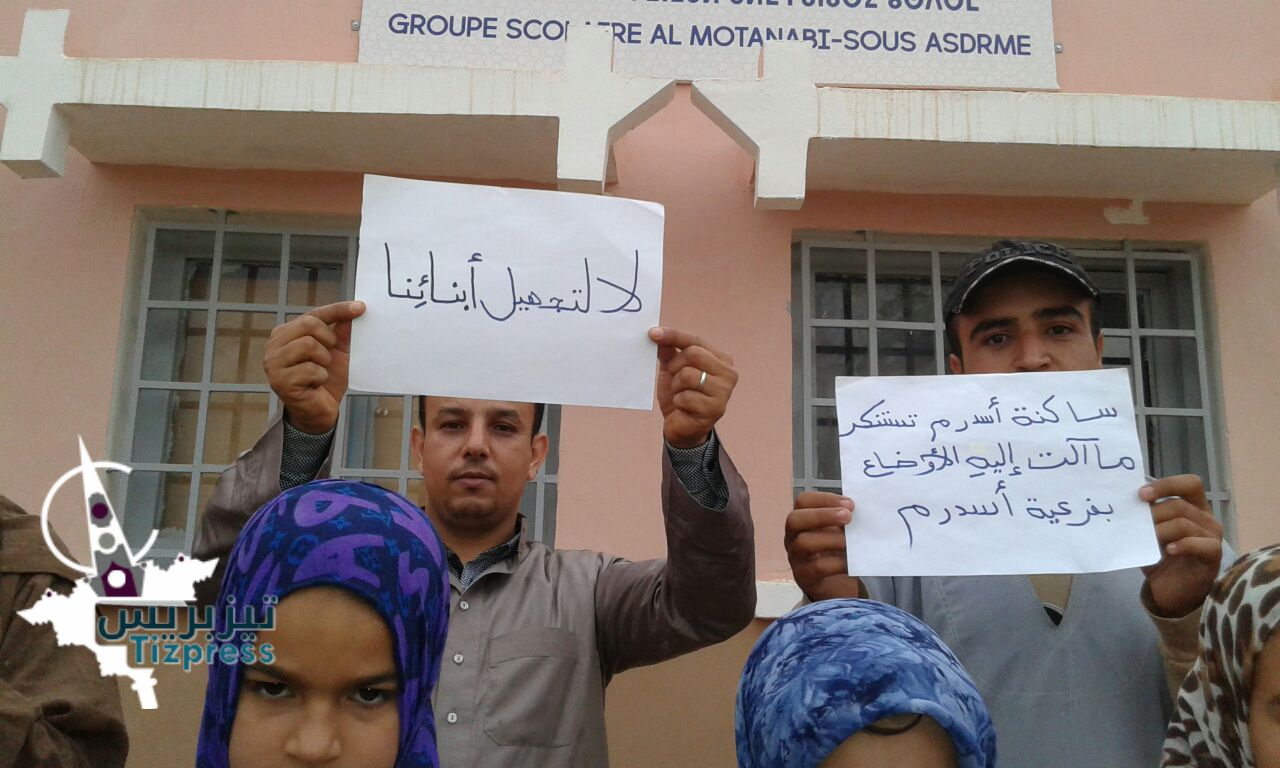 GROUPE SCOLAIRE AL MOTANABI-SOUS ASDRME
لا لتجهيل أبنائِنا
ساكنة أسدرم تستنكر
ما آلت إليه الأوضاع
بفرعية أسدرم
POLICE
تيزبريس
Tizpress